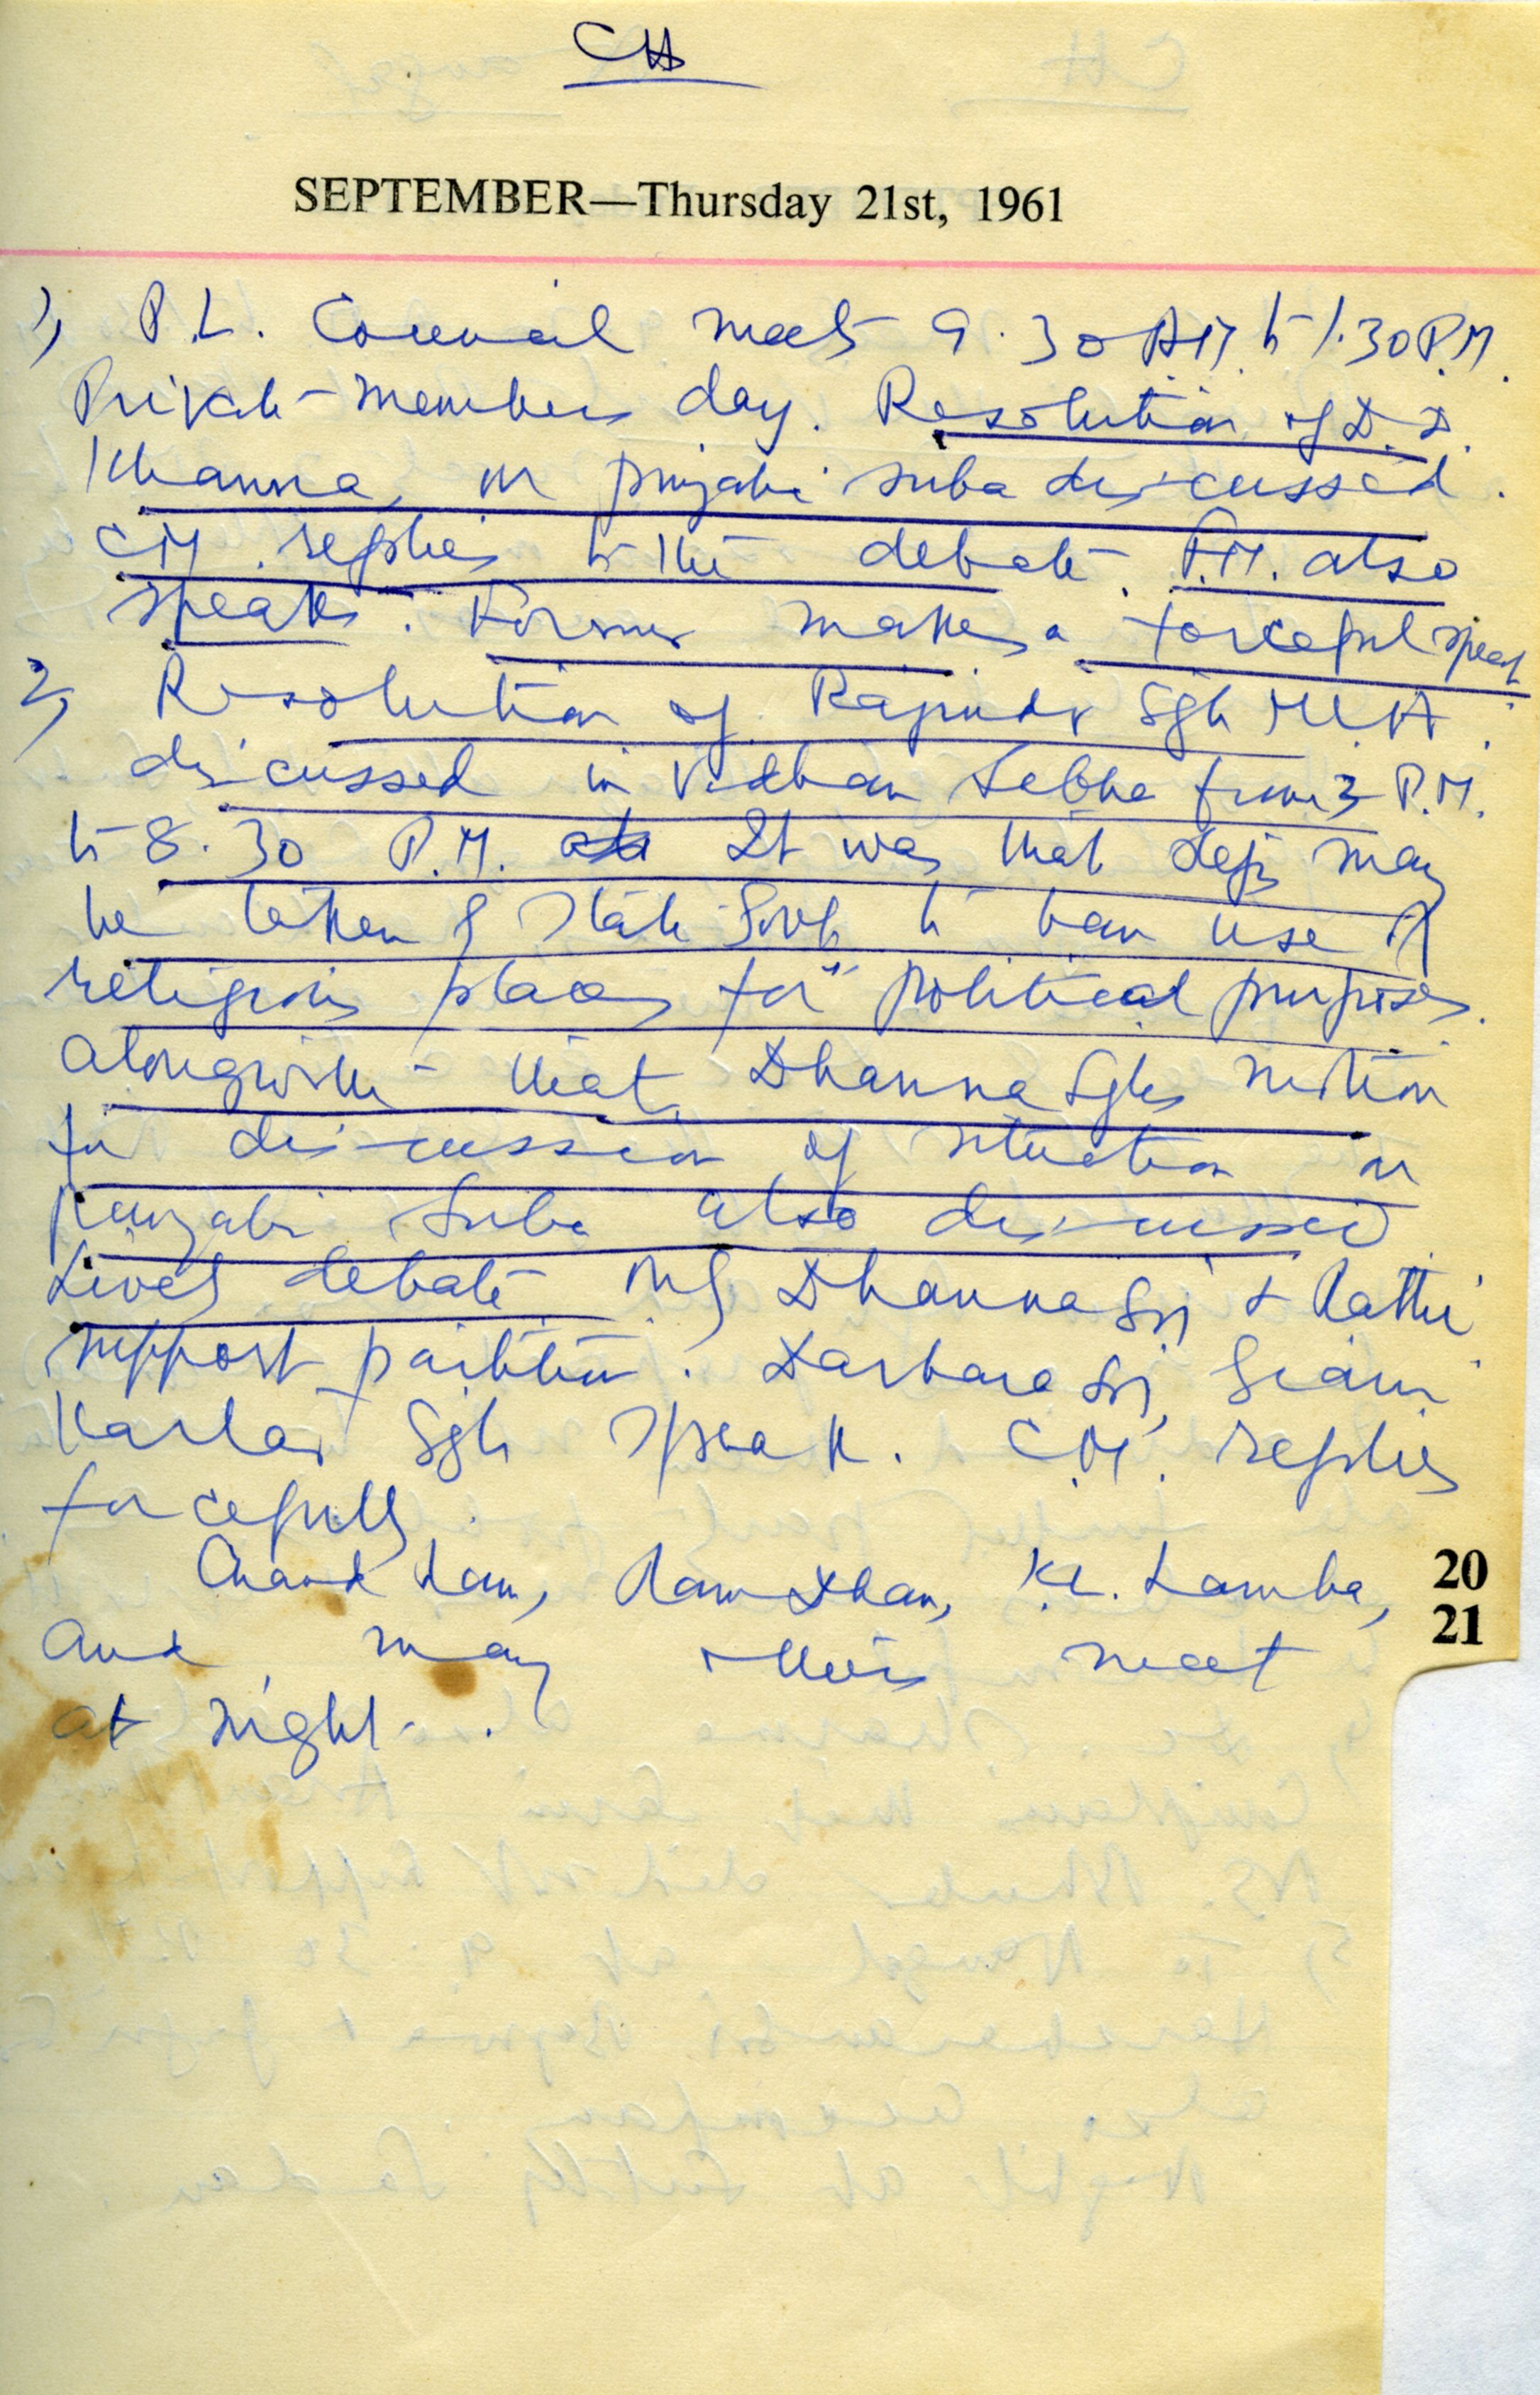 CH
SEPTEMBER—Thursday 21st, 1961
1) P.L. Council meets 9.30 AM to 1.30 P.M.
Private members day. Resolution of D.D.
Khanna, on punjabi suba discussed.
CM. replies to the debate. F.M. also
speaks. Former makes a forceful speech
2) Resolution of Rajinder Sgh MLA
discussed in Vidhan Sabha from 3 P.M.
to 8.30 P.M. It was that steps may
be taken by State Govt to ban use of
religious places for political purposes.
alongwith that, Dhanna Sghs motion
for discussion of situation on
Punjabi Suba also discussed
Lively debate. Dhanna Sgh & Rathi
support partition. Darbara Sgh, Giani
Kartar Sgh speak. C.M. replies
forcefully.
Chand Ram, Ram Dhan, K.L. Lamba,
20
and many others meet
21
at night.